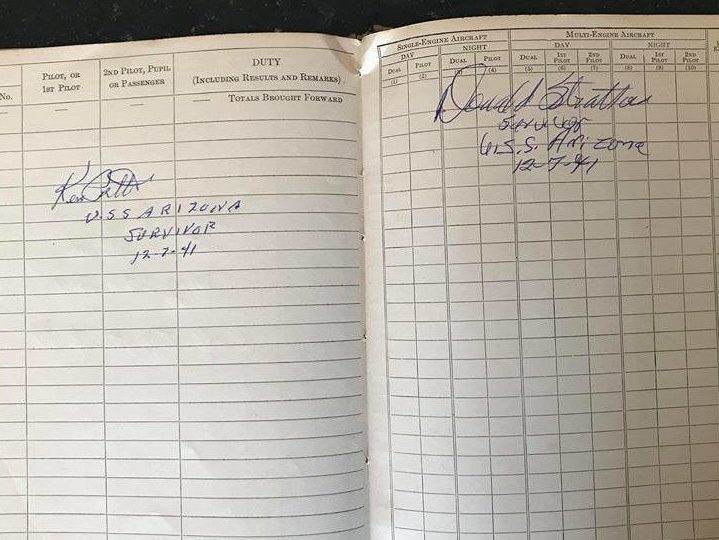 No.
PILOT, OR
1ST PILOT
2ND PILOT, PUPIL
OR PASSENGER
DUTY
(INCLUDING RESULTS AND REMARKS)
TOTALS BROUGHT FORWARD
Ken
U.S.S ARIZONA
SURVIVOR
12-7-41
SINGLE-ENGINE AIRCRAFT
MULTI-ENGINE AIRCRAFT
DAY NIGHT DAY NIGHT
DUAL PILOT DUAL PILOT DUAL 1ST PILOT 2ND PILOT DUAL 1ST PILOT 2ND PILOT
(1) (2) (3) (4) (5) (6) (7) (8) (9) (10)
Donald Stratton
Survivor
U.S.S. Arizona
12-7-41